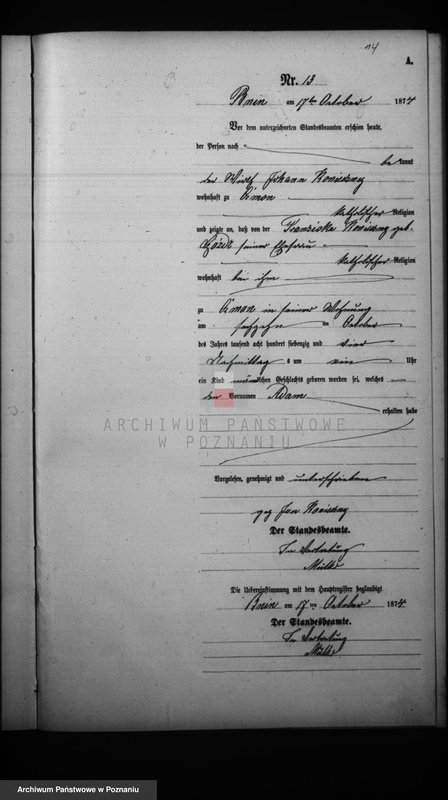 14
A.
Nr. 13
Bnin am 17ten October 1874
Vor dem unterzeichneten Standesbeamten erschien heute,
der Person nach
be kannt
der Wirth Johann
wohnhaft zu
katholischer Religion
und zeigte an, daß von der Franziska geb.
seiner Ehefrau
katholischer Religion
wohnhaft bei ihm
zu in seiner Wohnung
am sechzehn ten October
des Jahres tausend acht hundert siebenzig und vier
Nachmittag s um ein Uhr
ein Kind männlichen Geschlechts geboren worden sei, welches
den Vornamen Adam
erhalten habe
ARCHIWUM PAŃSTWOWE
W POZNANIU
Vorgelesen, genehmigt und unterschrieben
gez Jan
Der Standesbeamte.
In Vertretung
Die Uebereinstimmung mit dem Hauptregister beglaubigt
Bnin am 17 ten October 1874.
Der Standesbeamte.
In Vertretung
Archiwum Państwowe w Poznaniu